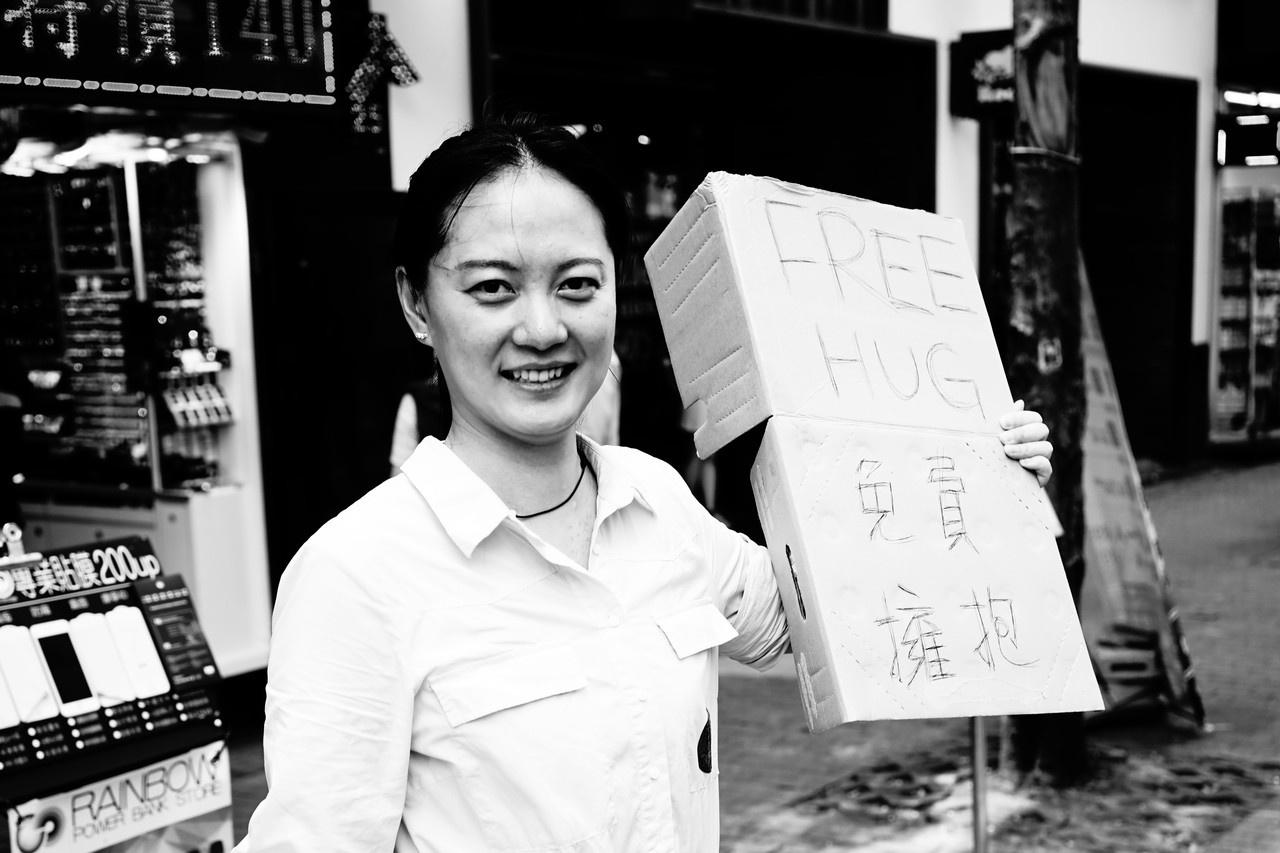 特價140
FREE
HUG
免員
擁抱
專業貼膜200up
RAINBOW
POWER BANK STORE